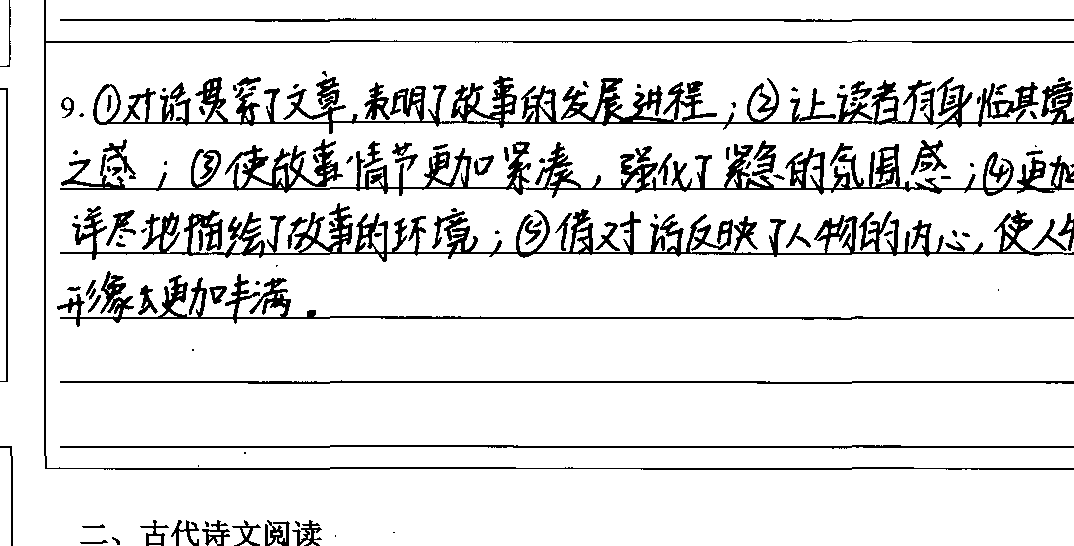 9. ①对话贯穿了文章,表明了故事的发展进程;②让读者有身临其境
之感;③使故事情节更加紧凑,强化了紧急的氛围感;④更加
详尽地描绘了故事的环境;⑤借对话反映了人物的内心,使人物
形象更加丰满。
二、古代诗文阅读